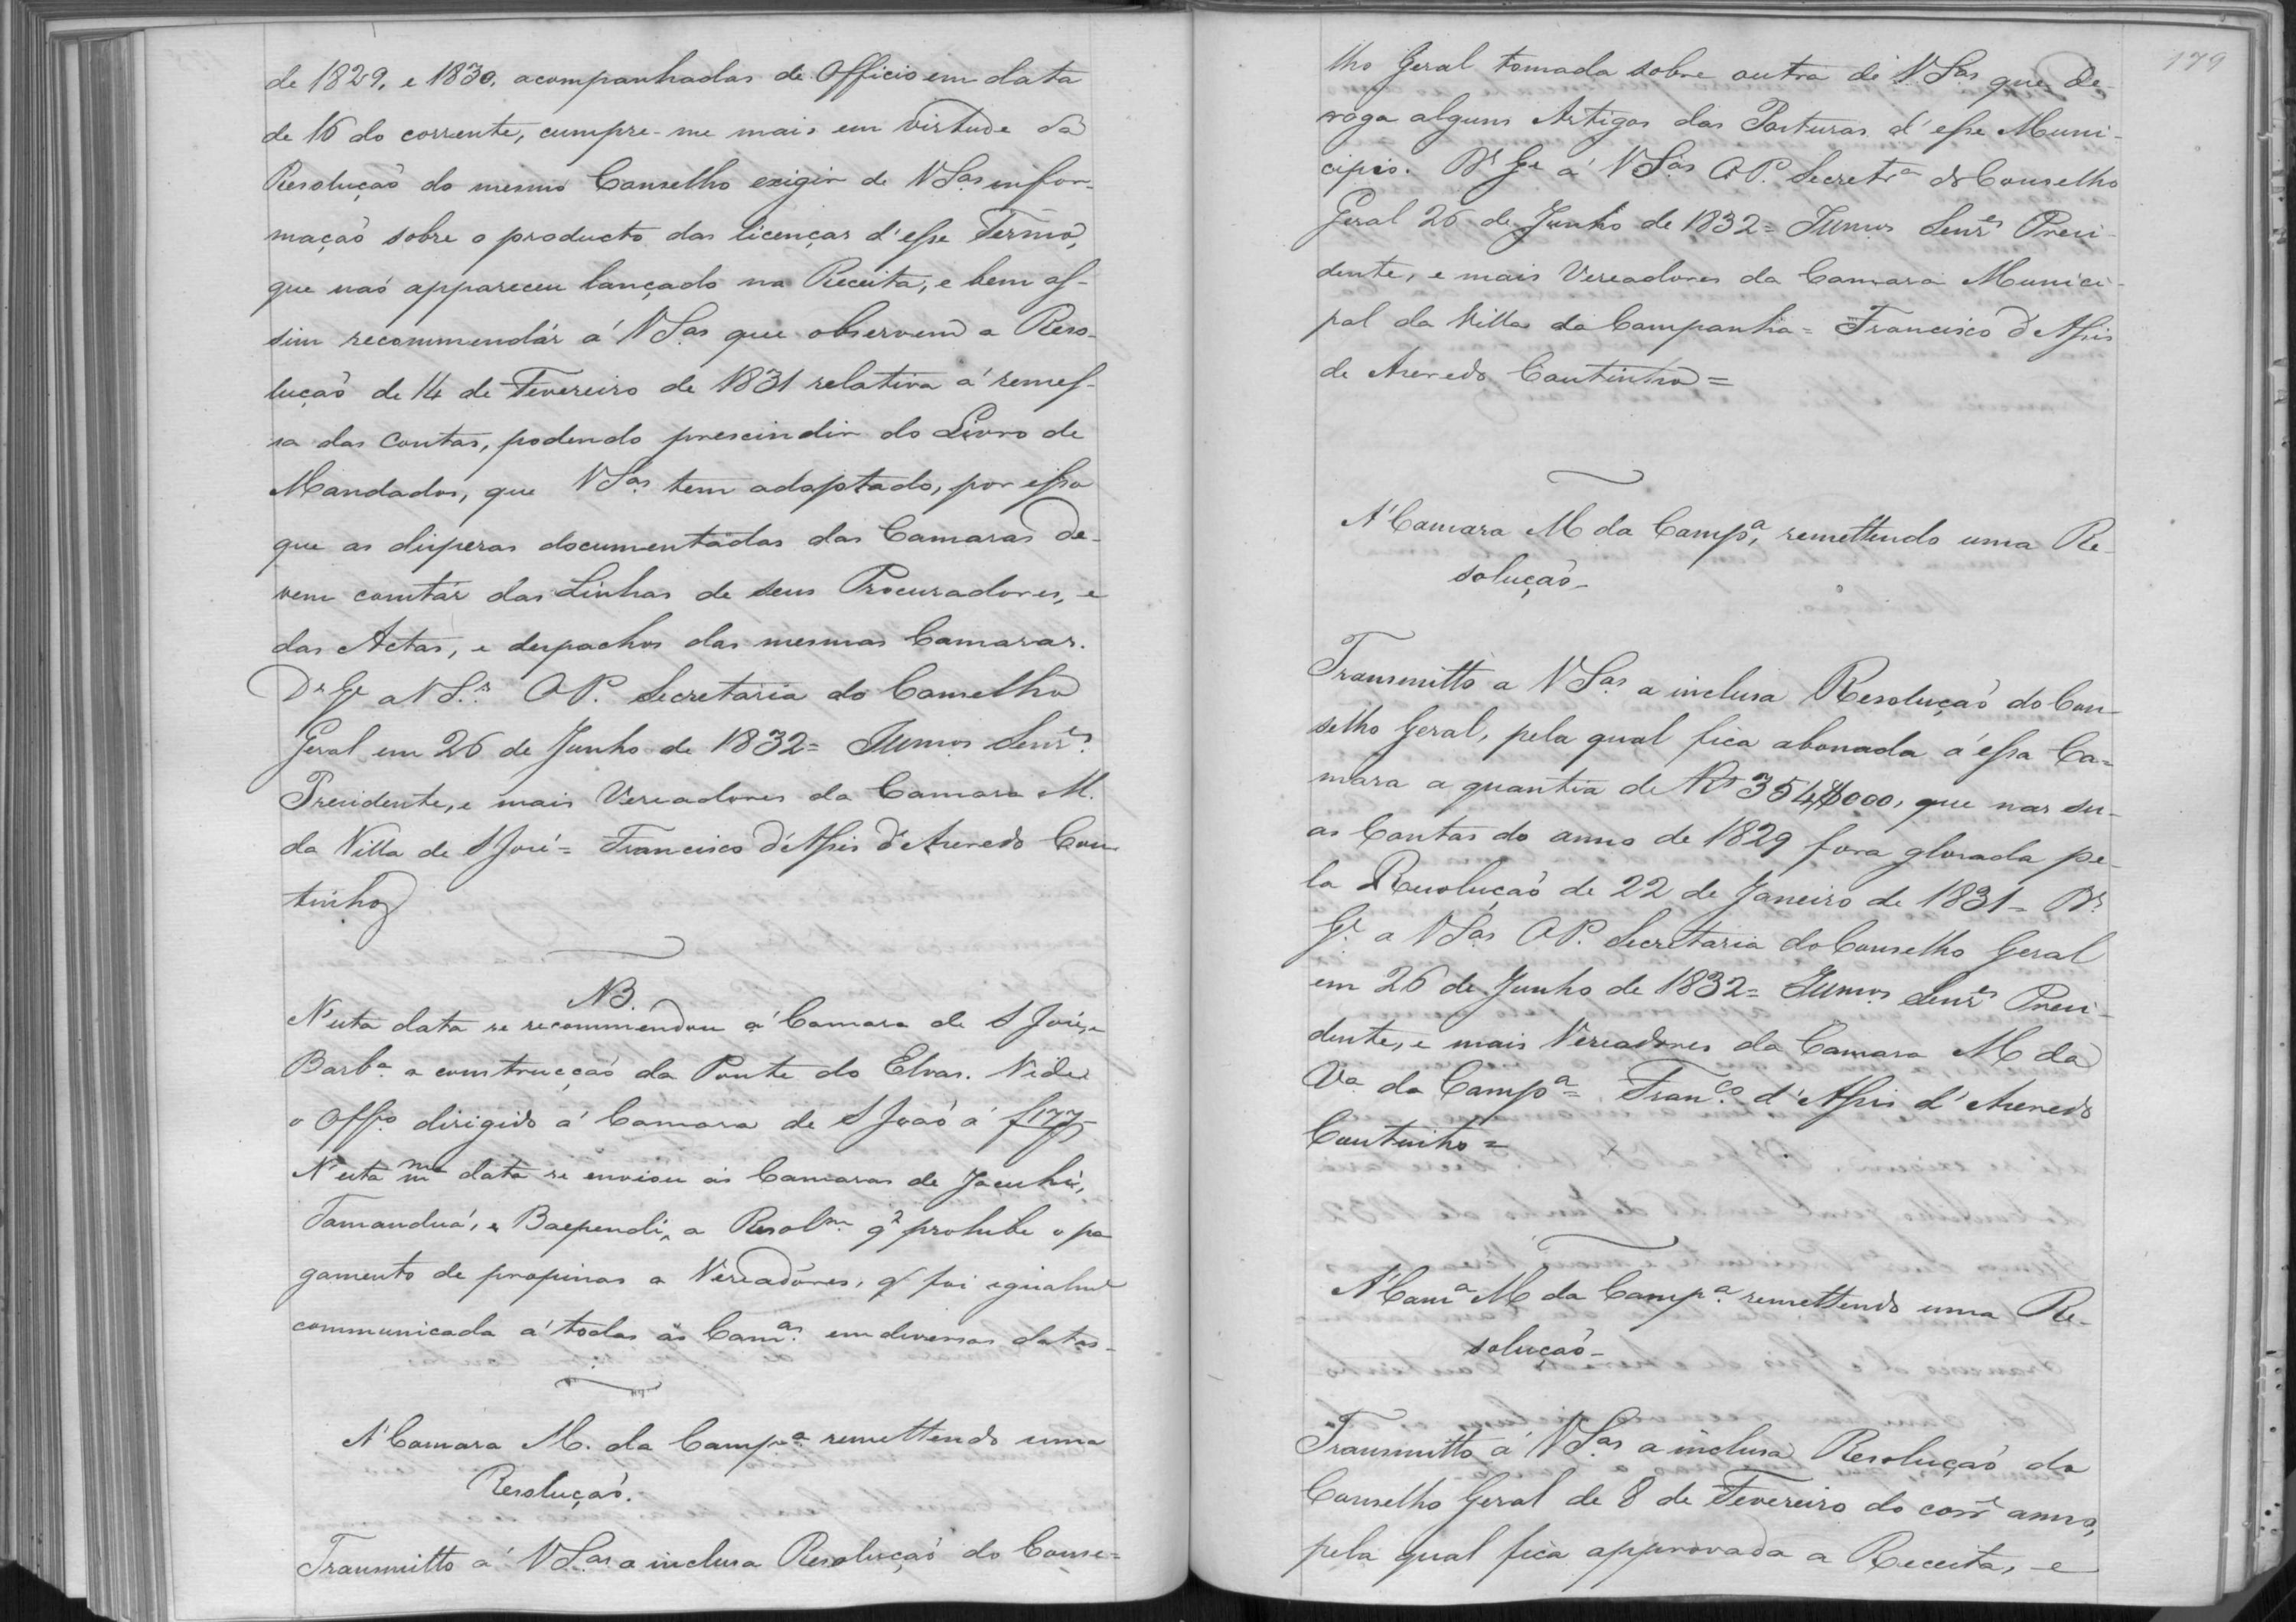 de 1829, e 1830, acompanhadas de Officio em data
de 16 do corrente, cumpre-me mais em virtude da
Resolução do mesmo Conselho exigir de V Sas infor-
mação sobre o producto das licenças d'esse Termo,
que naõ appareceu lançado na Receita, e bem as-
sim recommendár á V Sas que observem a Reso-
luçaõ de 14 de Fevereiro de 1831 relativa á remes-
sa das Contas, podendo prescindir do Livro de
Mandados, que V Sas tem adoptado, por isso
que as dispesas documentadas das Camaras de-
vem constár das Linhas de seus Procuradores, e
das Actas, e despachos das mesmas Camaras.
Ds Ge a V S.s O P. Secretaria do Conselho
Geral em 26 de Junho de 1832 = Illmos Senres
Presidente, e mais Vereadores da Camara M.
da Villa de S José = Francisco d'Assis d'Azeredo Cou-
tinho
NB.
N'esta data se recommendou á Camara de S José, e
Barba a construcçaõ da Ponte do Elvas. Vide
o Offo dirigido á Camara de S Joaõ á f 177
N'esta ma data se enviou ás Camaras de Jacuhi,
Tamanduá, e Baependi, a Resolm qe prohibe o pa
gamento de propinas a Vereadores, q foi igualme
communicada á todas as Camas em diversas datas -
A' Camara M. da Campa remettendo uma
Resoluçaõ.
Transmitto á V Sas a inclusa Resoluçaõ do Conse-
179
lho Geral tomada sobre outra de V Sas que de-
roga alguns Artigos das Posturas d'esse Muni-
cipio. Ds Ge á V Sas O P. Secretra do Conselho
Geral 26 de Junho de 1832 = Illmos Senres Presi-
dente, e mais Vereadores da Camara Munici-
pal da Villa da Campanha = Francisco d'Assis
de Azeredo Coutinho =
A' Camara M da Campa, remettendo uma Re-
soluçaõ -
Transmitto a V Sas a inclusa Resoluçaõ do Con-
selho Geral, pela qual fica abonada á essa Ca-
mara a quantia de Rs 354$000, que nas su-
as Contas do anno de 1829 fora glosada pe-
la Resoluçaõ de 22 de Janeiro de 1831 - Ds
Ge a V Sas O P. Secretaria do Conselho Geral
em 26 de Junho de 1832 = Illmos Senres Presi-
dente, e mais Vereadores da Camara M da
Va da Campa = Franco d'Assis d'Azeredo
Coutinho =
A' Cama M da Campa remettendo uma Re-
soluçaõ -
Transmitto á V Sas a inclusa Resoluçaõ do
Conselho Geral de 8 de Fevereiro do corre anno,
pela qual fica approvada a Receita, e